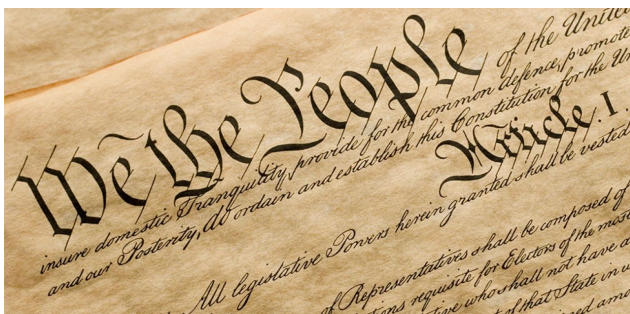 We the People of the United
insure domestic Tranquility, provide for the common defence, promote
and our Posterity, do ordain and establish this Constitution for the Un
Article. I.
All legislative Powers herein granted shall be vested
of Representatives shall be composed of
ions requisite for Electors of the most
tive who shall not have a
of that State in w